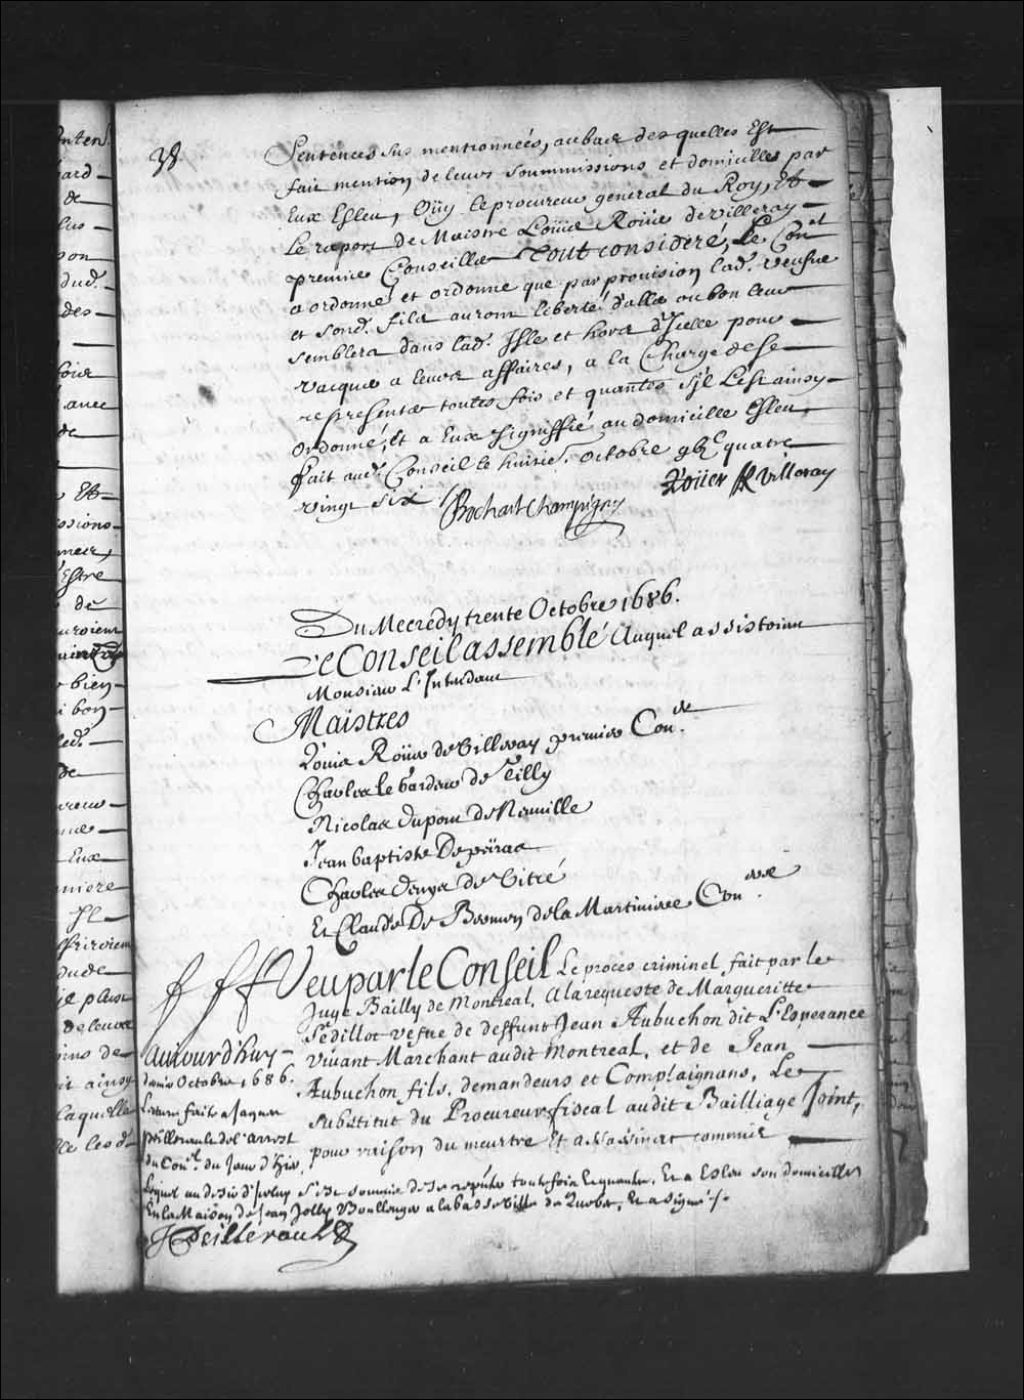 38
Sentences sus mentionneés, au bas des quelles Est
fait mention de leurs soummissions et domicilles par
Eux Esleu, Oüy le procureur general du Roy, Et
Le raport de Maistre Loüis Roüer de Villeray
premier Conseiller Tout consideré, Le Con.el
a ordonné et ordonne que par provision lad. veufue
et sond. fils auront liberté d'aller ou bon leur
semblera dans lad. Isle et hors d'Icelle pour
vacquer a leurs affaires, a la Charge de se
representer toutes fois et quantes s'jl Est ainsy
ordonné, Et a Eux signiffié au domicille Esleu,
fait aud. Conseil le huitie. octobre gbic quatre
vingt six
BochartChampigny
Roüer De Villeray
Du Mecredy trente Octobre 1686.
Le Conseil assemblé Auquel assistoient
Monsieur L'Intendant
Maistres
Loüis Roüer de Villeray premier Con.er
Charles le Gardeur de Tilly
Nicolas dupont de Neuuille
Jean baptiste Depeiras
Charles denys de Vitré
Et Claude De Bermen de la Martiniere Con.ers
Veu par le Conseil Le proces criminel fait par le
Juge Bailly de Montreal, A la requeste de Margueritte
Sedillot vefue de deffunt Jean Aubuchon dit L'Esperance
vivant Marchant audit Montreal, et de Jean
Aubuchon fils, demandeurs et Complaignans, Le
substitut du Procureur fiscal audit Bailliage Joint,
pour raison du meurtre Et assassinat commis
Aujourd'huy
dernier Octobre 1686.
Lecture faite a Jaques
peillerault de l'arrest
du Con.el du Jour d'hier,
Lequel au desir d'jceluy s'est soumis de se repñter toute fois et quantes, Et a Esleu son domicille
En la Maison de Jean Jolly Boullenger a la basse ville de Quebec, Et a signé ./.
J Peillerault